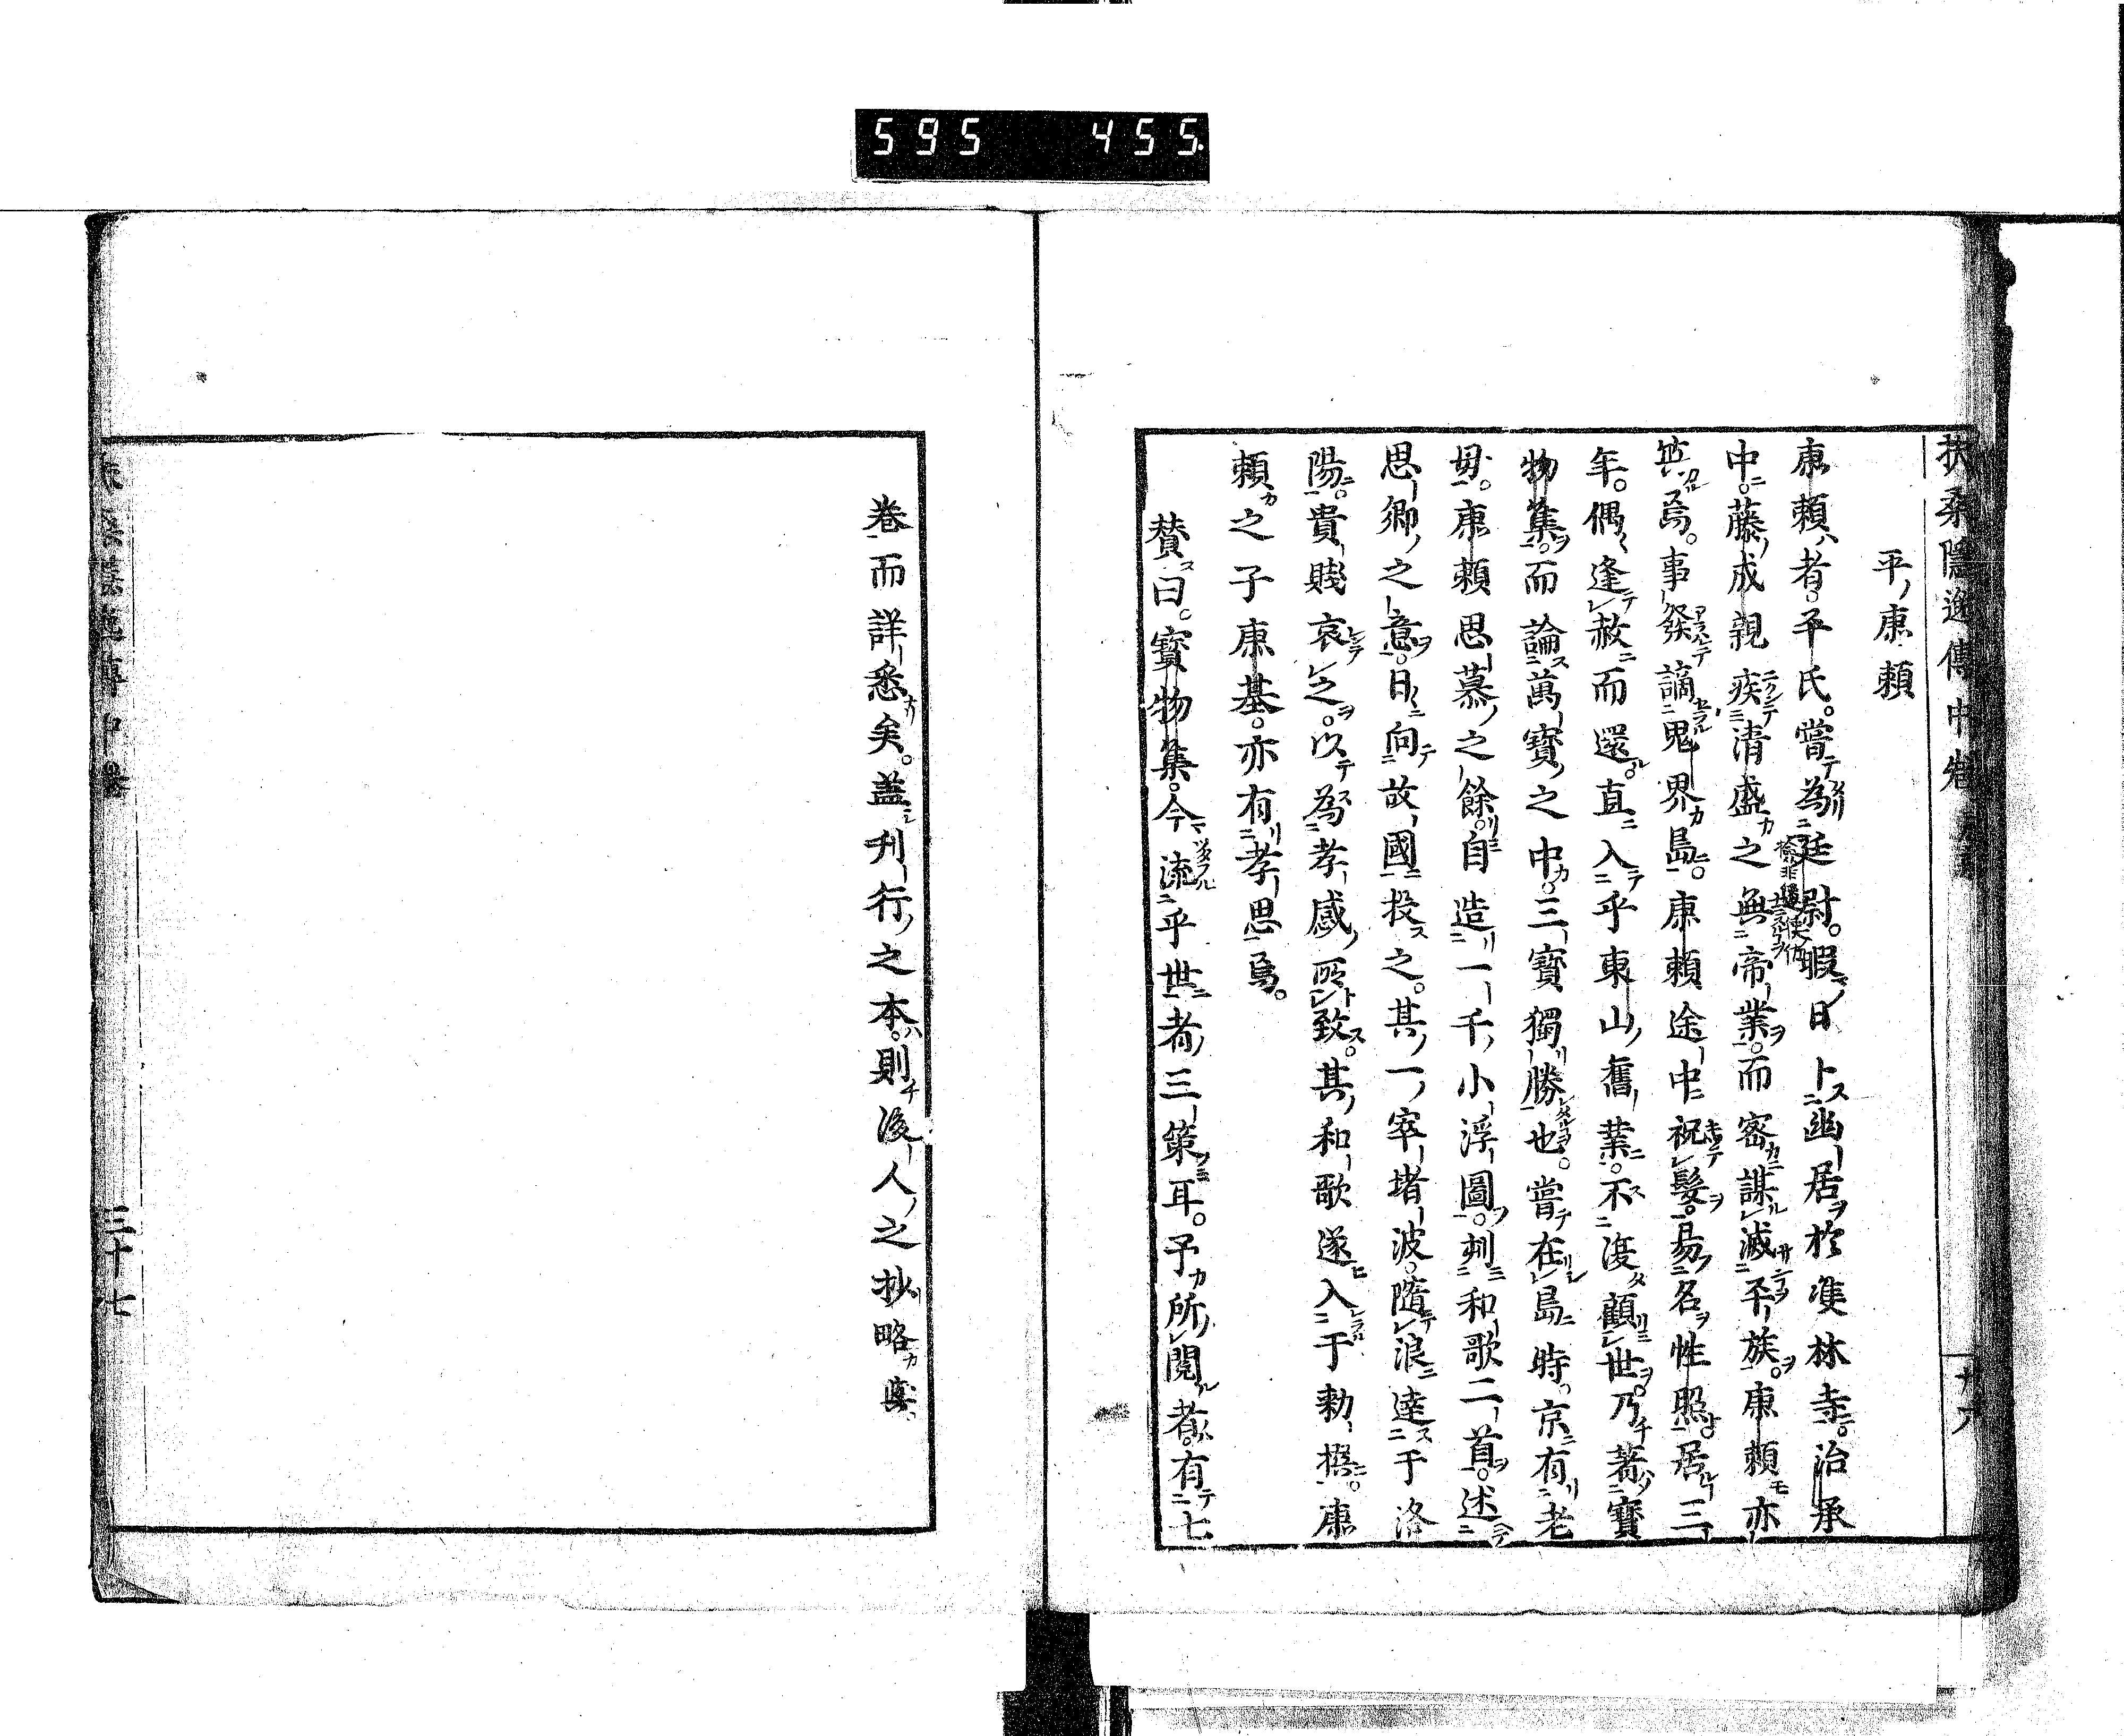 595 455.
扶桑隱逸傳中卷
平康頼
康頼者。平氏。嘗為廷尉。暇日卜幽居於雙林寺。治承
中。藤成親疾清盛之無帝業。而密謀滅平族。康頼亦
與焉。事發謫鬼界島。康頼途中祝髮。易名性照。居三
年。偶逢赦而還。直入乎東山舊業。不復顧世。乃著寶
物集。而論萬寶之中。三寶獨勝也。嘗在島時。京有老
母。康頼思慕之餘。自造一千小浮圖。刺和歌二首。述
思鄉之意。日向故國投之。其一窣堵波。隨浪達于洛
陽。貴賤哀之。以為孝感所致。其和歌遂入于勅撰。康
頼之子康基。亦有孝思焉。
賛曰。寶物集。今流乎世者三策耳。予所閲者。有七
卷而詳悉矣。蓋刋行之本。則後人之抄略歟
三十七